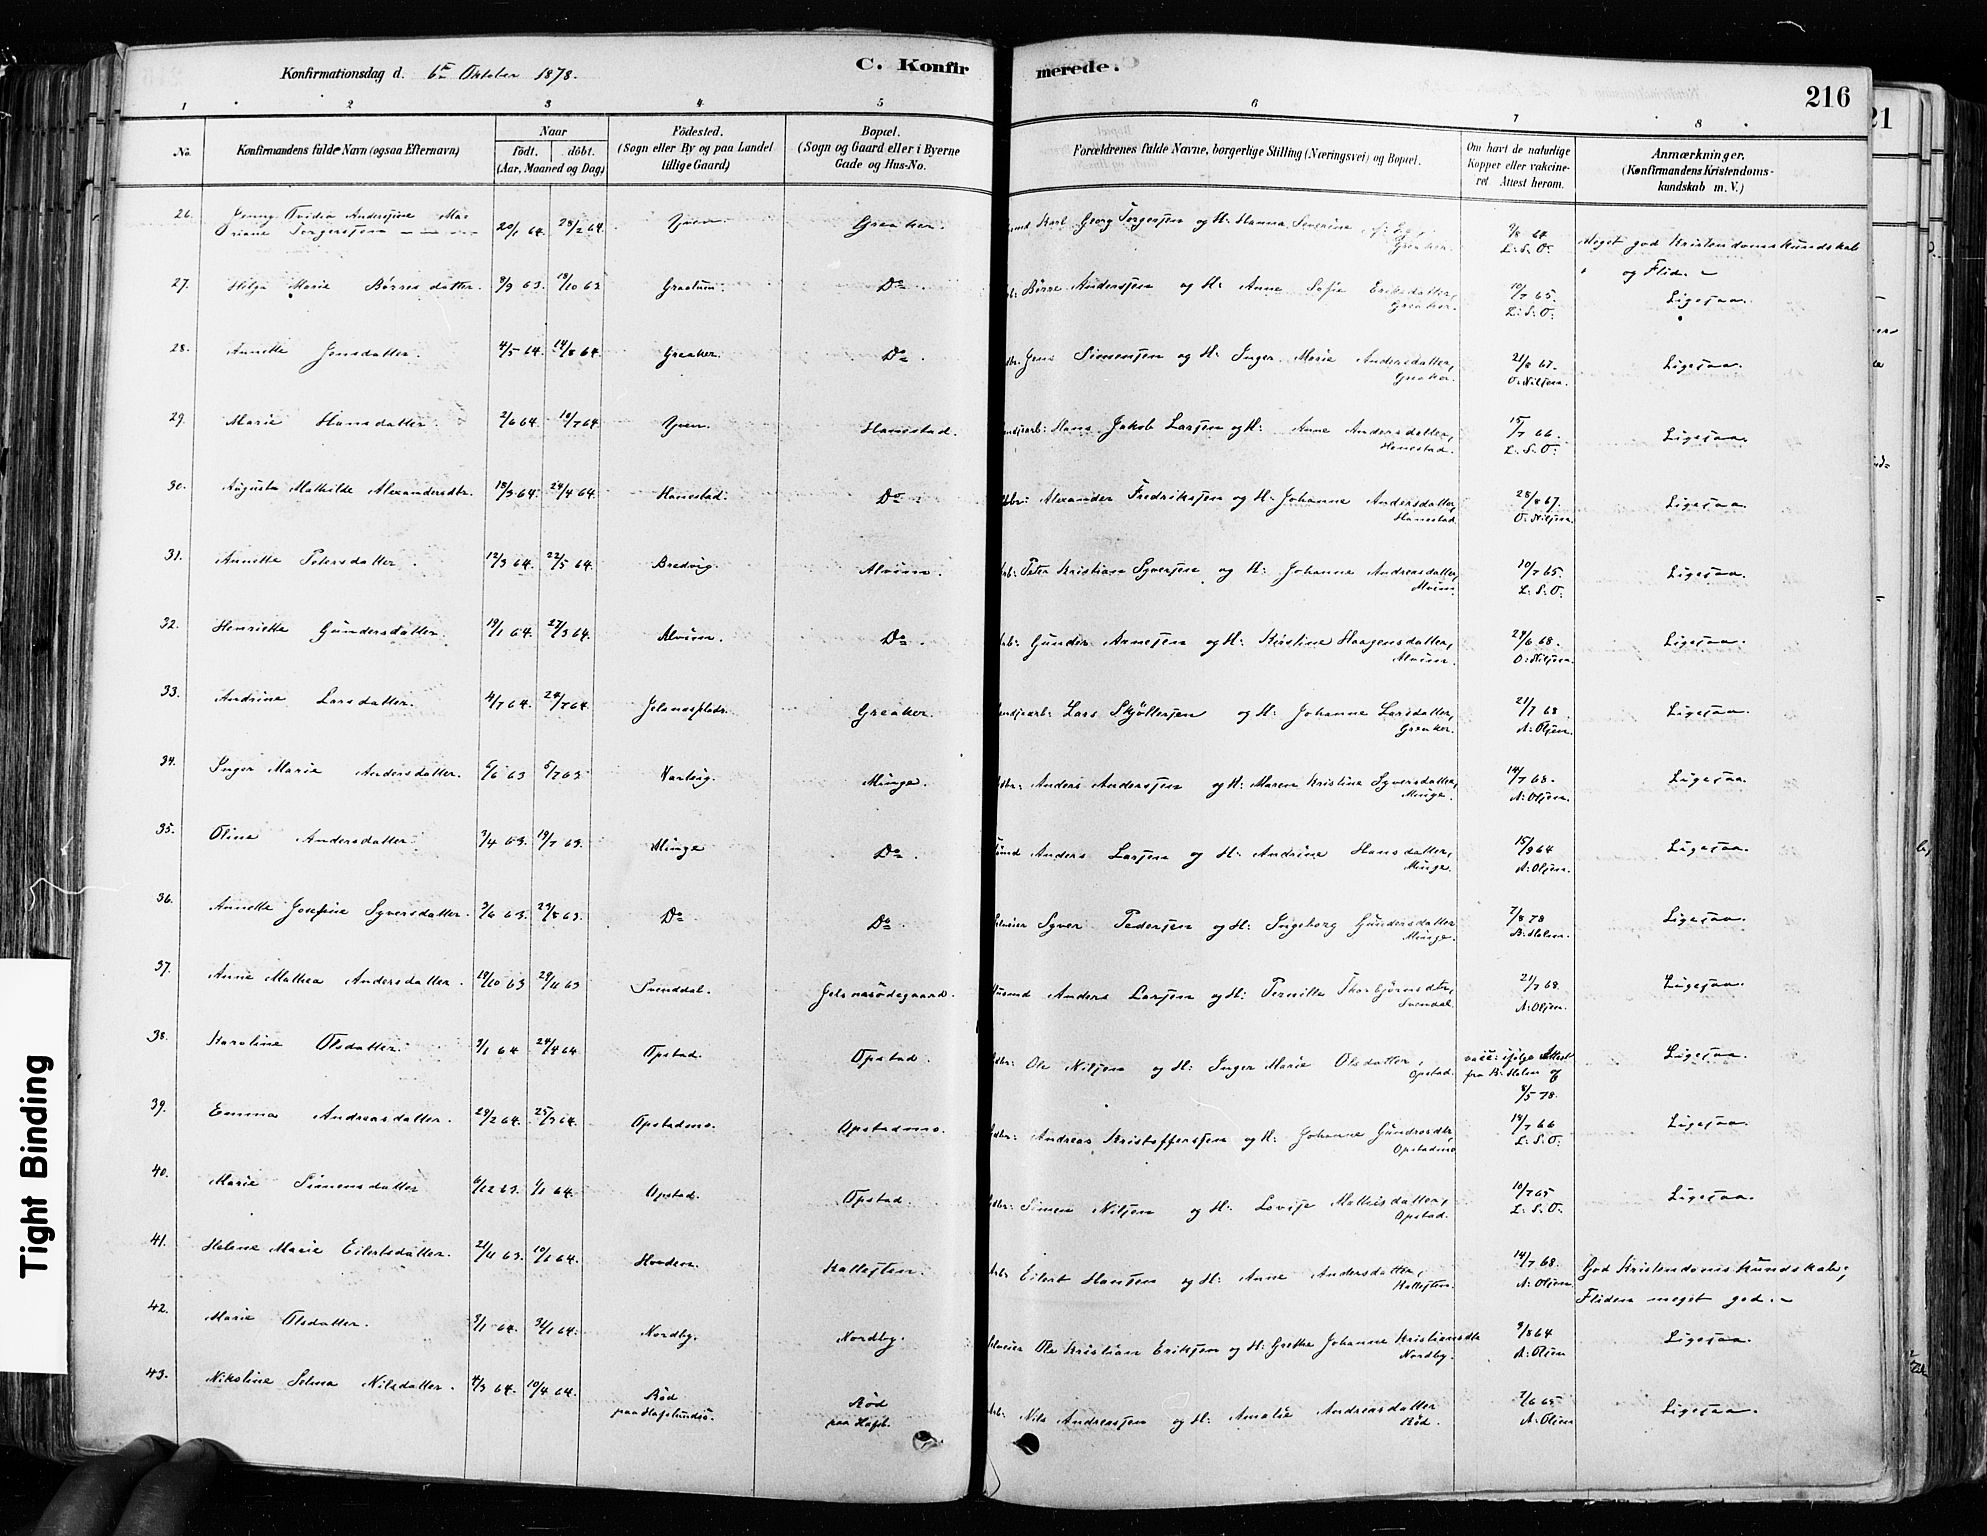 Konfirmationsdag d. 6te Oktober 1878.
C. Konfirmerede.
216
1 2 3 4 5 6 7 8
No.
Konfirmandens fulde Navn (ogsaa Efternavn)
Naar
födt. döbt.
(Aar, Maaned og Dag)
Födested.
(Sogn eller By og paa Landet
tillige Gaard)
Bopæl.
(Sogn og Gaard eller i Byerne
Gade og Hus-No.
Forældrenes fulde Navne, borgerlige Stilling (Næringsvei) og Bopæl.
Om havt de naturlige
Kopper eller vakcine-
ret Attest herom.
Anmærkninger.
(Konfirmandens Kristendoms-
kundskab m. V.)
26. Jenny Ovidia Andersine Ma-
riane Torgersen 20/1 64. 28/2 64. Yven. Greaker. Karl Georg Torgersen og H: Hanna Severine
Greaker. 9/8 64 L: S. O. Meget god Kristendomskundskab
og Flid.
27. Helga Marie Börresdatter. 9/9 63. 18/10 63 Graatum. Do. Börre Andersen og H: Anne Sofie Eriksdatter,
Greaker. 10/7 65. L: S: O: Ligesaa.
28. Annette Jensdatter. 4/5 64. 14/8 64. Greaker. Do. Jens Simensen og H: Inger Marie Andersdatter,
Greaker. 21/8 67. O: Nilsen. Ligesaa.
29. Marie Hansdatter. 2/6 64. 10/7 64. Yven. Hanestad. Hans Jakob Larsen og H: Anne Andersdatter,
Hanestad. 15/7 66. L. S. O. Ligesaa.
30. Augusta Mathilde Alexandersdtr. 18/3 64. 24/4 64. Hanestad. Do. Alexander Fredriksen og H: Johanne Andersdatter,
Hanestad. 28/8 67. O. Nilsen. Ligesaa.
31. Annette Petersdatter. 12/3 64. 22/5 64. Bredvig. Alvim. Peter Kristian Syversen og H: Johanne Andreasdatter,
Alvim. 10/7 65. L: S: O. Ligesaa.
32. Henriette Gundersdatter. 19/1 64. 27/3 64. Alvim. Do. Gunder Arnesen og H: Kristine Haagensdatter,
Alvim. 29/6 68. O: Nilsen. Ligesaa.
33. Andrine Larsdatter. 4/7 64. 24/7 64. Jelsnespladr. Greaker. Lars Skjöllersen og H: Johanne Larsdatter,
Greaker. 21/7 68. A: Olsen. Ligesaa.
34. Inger Marie Andersdatter. 5/6 63 5/7 63. Varteig. Minge. Anders Andersen og H: Maren Kristine Syversdatter,
Minge. 14/7 68. A: Olsen. Ligesaa.
35. Oline Andersdatter. 3/4 63. 19/7 63. Minge Do. Anders Larsen og H: Andrine Hansdatter,
Minge. 15/9 64 A: Olsen. Ligesaa.
36. Annette Josefine Syversdatter. 3/6 63. 23/8 63. Do Do. Syver Pedersen og H: Ingeborg Gundersdatter
Minge. 7/8 78 B: Holm. Ligesaa.
37. Anne Mathea Andersdatter. 19/10 63 29/11 63 Svenddal. Jelsnesödegaard. Husmd Anders Larsen og H: Pernille Thorbjörnsdtr,
Svendal. 21/7 68. A: Olsen. Ligesaa.
38. Karoline Olsdatter. 3/1 64 24/4 64 Opstad. Opstad. Ole Nilsen og H: Inger Marie Olsdatter,
Opstad. vacc: ifölge Attest
fra B: Holm af
8/5 78. Ligesaa.
39. Emma Andreasdatter. 29/2 64. 25/3 64. Opstadmo. Opstadmo. Andreas Kristoffersen og H: Johanne Gundrosdtr,
Opstadmo 19/7 66 L: S. O. Ligesaa.
40. Marie Simensdatter 6/12 63. 1/1 64. Opstad. Opstad. Simen Nilsen og H: Lovise Mathisdatter,
Opstad. 10/7 65 L. S. O. Ligesaa.
41. Helene Marie Eilertsdatter. 21/11 63. 10/1 64. Hvidern. Kallesten. Eilert Hansen og H: Anne Andersdatter,
Kallesten. 14/7 68. A: Olsen. God Kristendomskundskab;
Fliden meget god.
42. Marie Olsdatter. 3/1 64. 31/1 64. Nordby. Nordby. Ole Kristian Eriksen og H: Grethe Johanne Kristiansdtr
Nordby. 9/8 64 A: Olsen Ligesaa.
43. Nikoline Selma Nilsdatter. 4/3 64. 10/4 64. Röd
paa Hafslundsö. Röd
paa Hafsl. Nils Andreassen og H: Amalie Andreasdatter
Röd. 7/6 65 A: Olsen Ligesaa.
Tight Binding
21